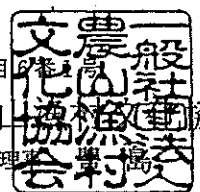 一般社団法人
農山漁村
文化協会